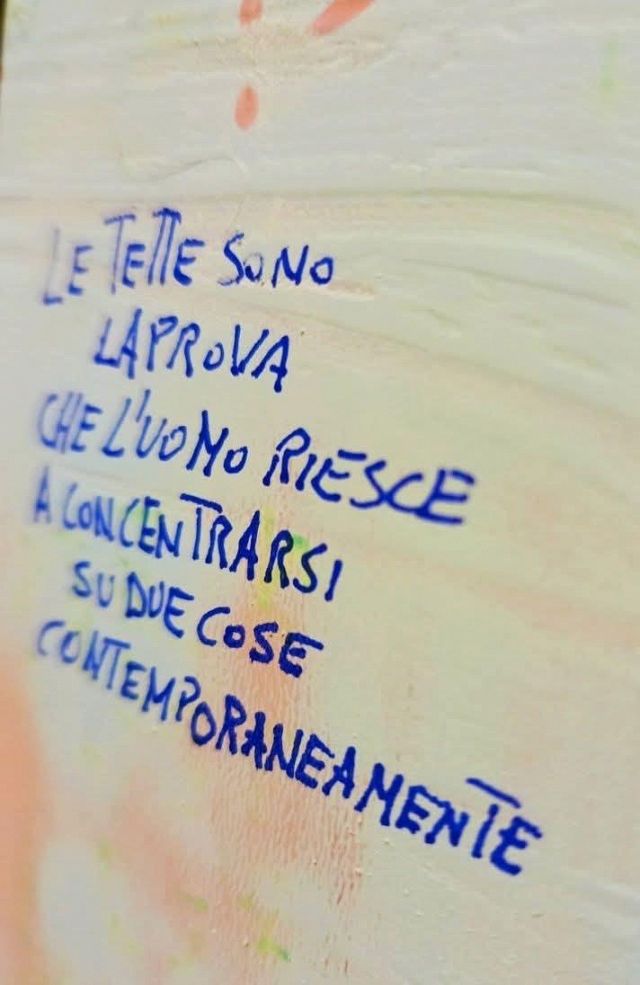 LE TETTE SONO
LA PROVA
CHE L'UOMO RIESCE
A CONCENTRARSI
SU DUE COSE
CONTEMPORANEAMENTE